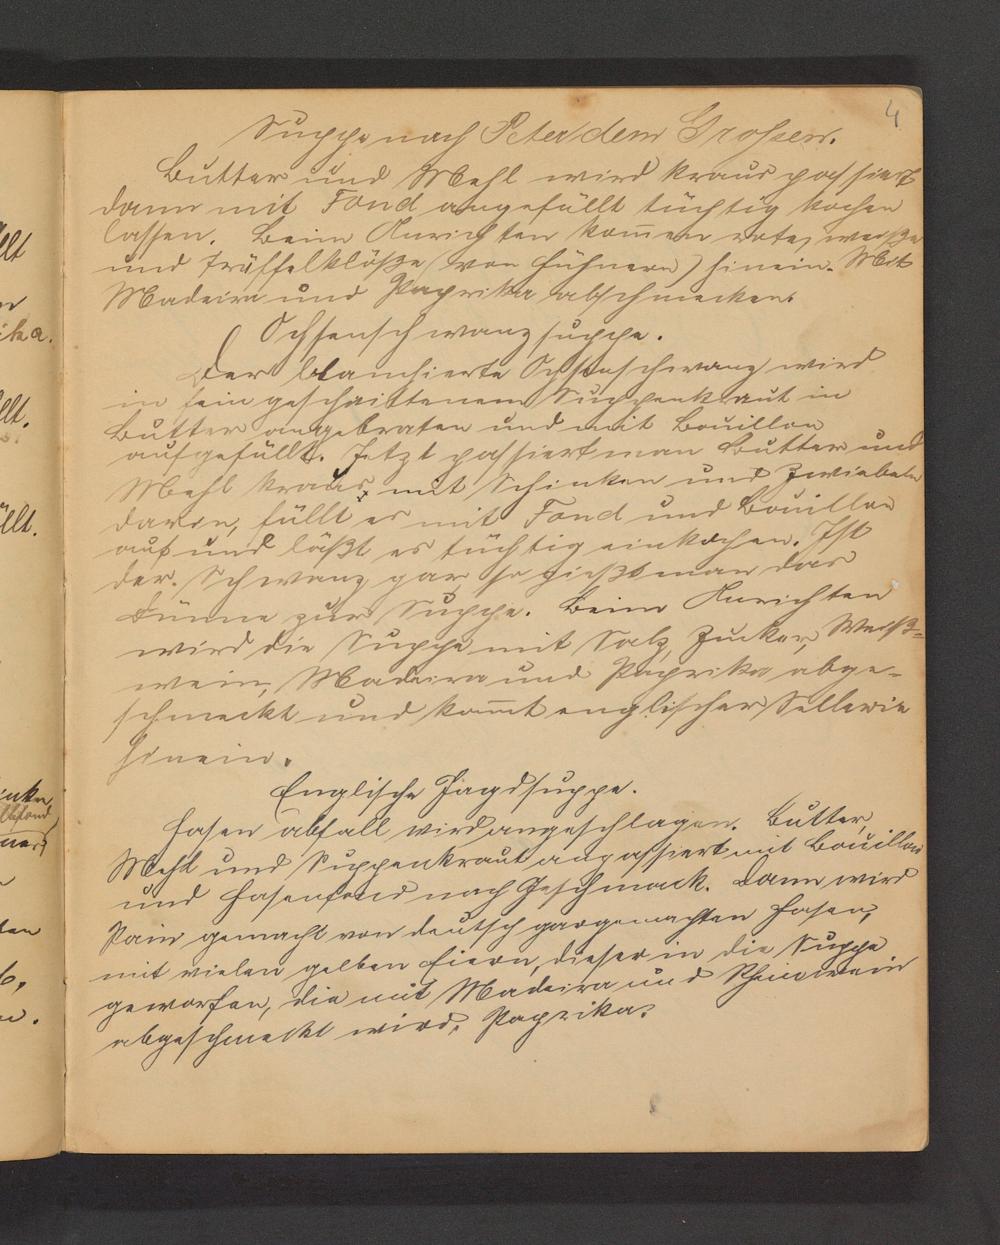 4
Suppe nach Peter dem Großen.
Butter und Mehl wird kraus passiert
dann mit Fond angefüllt tüchtig kochen
lassen. Beim Anrichten kom̄en rote, weiße
und Trüffelklöße (von Hühnern) hinein. Mit
Madeira und Paprika abschmecken.
Ochsenschwanzsuppe.
Der blanchierte Ochsenschwanz wird
in fein geschnittenem Suppenkraut in
Butter angebraten und mit Bouillon
aufgefüllt. Jetzt passiert man Butter und
Mehl kraus, mit Schinken und Zwiebeln
darin, füllt es mit Fond und Bouillon
auf und läßt es tüchtig einkochen. Ist
der Schwanz gar so gießt man das
Dünne zur Suppe. Beim Anrichten
wird die Suppe mit Salz, Zucker, Weiß=
wein, Madeira und Paprika abge-
schmeckt und kom̄t englischer Sellerie
hinein.
Englische Jagdsuppe.
Hasenabfall wird angeschlagen. Butter,
Mehl und Suppenkraut anpassiert mit Bouillon
und Hasenfond nach Geschmack. Dann wird
Pain gemacht von deutsch gargemachten Hasen,
mit vielen gelben Eiern, dieser in die Suppe
geworfen, die mit Madeira und Rheinwein
abgeschmeckt wird. Paprika.